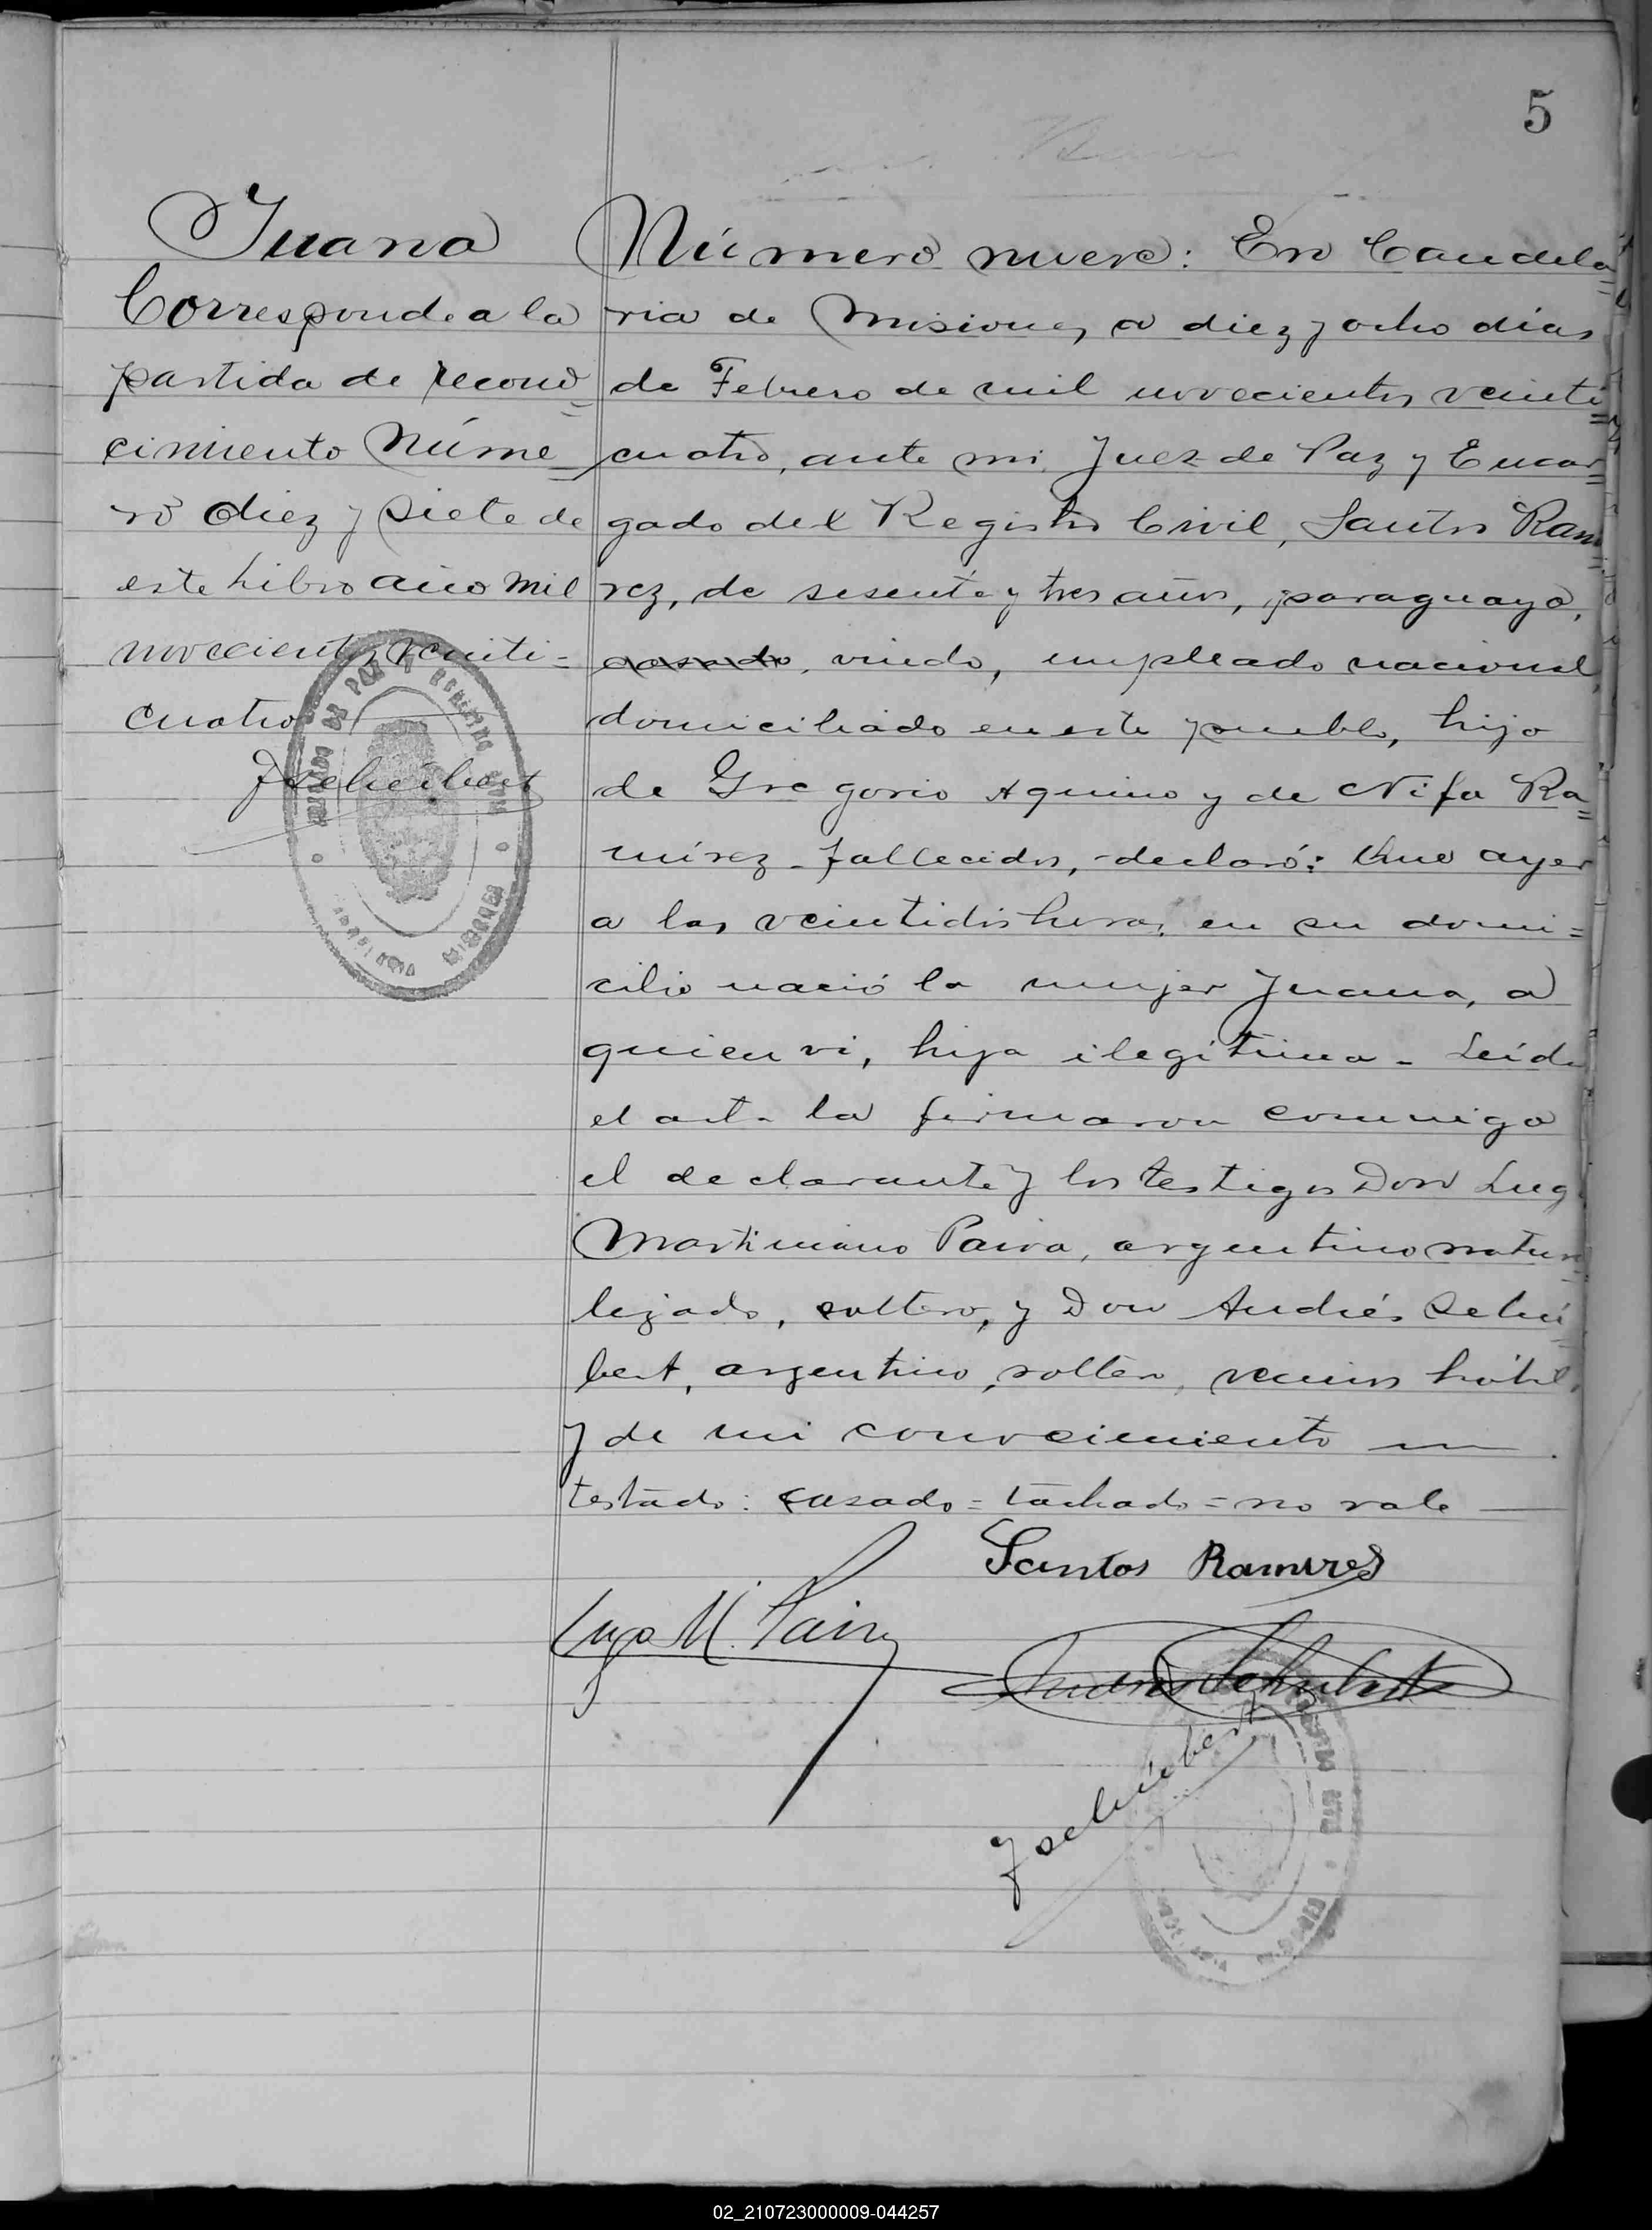 5
Juana
Corresponde a la
partida de recono=
cimiento Núme=
ro diez y siete de
este Libro año mil
novecientos veinti=
cuatro
JSchúbert
JUZGADO DE PAZ Y REGISTRO CIVIL
CANDELARIA MISIONES
Número nueve: En Candela=
ria de Misiones, a diez y ocho días
de Febrero de mil novecientos veinti=
cuatro, ante mi Juez de Paz y Encar=
gado del Registro Civil, Santos Rami=
rez, de sesenta y tres años, paraguayo,
casado, viudo, empleado nacional,
domiciliado en este pueblo, hijo
de Gregorio Aquino y de Nifa Ra=
mírez - fallecidos, - declaró: Que ayer
a las veintidos horas, en su domi=
cilio nació la mujer Juana, a
quien vi, hija ilegítima - Leída
el acta la firmaron conmigo
el declarante y los testigos Don Lugo
Martiniano Paiva, argentino natura=
lizado, soltero, y Don Andrés Schú=
bert, argentino, soltero, vecinos hábiles
y de mi conocimiento —
testado: casado = tachado = no vale —
Santos Ramires
Lugo M. Paiva
Andrés Schubert
JSchúbert
02_210723000009-044257